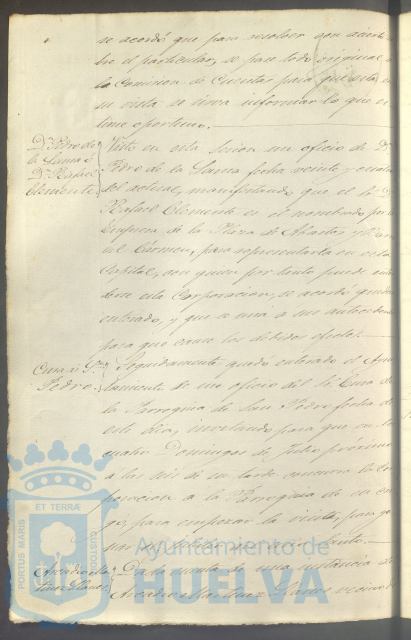 se acordó que para resolver con acierto
bre el particular, se pase todo original
la Comision de Cuentas para que esta en
su vista se sirva informar lo que es
time oportuno.
Dn. Pedro de
la Llama ó
Dn. Rafael
Clemente
Visto en esta sesion un oficio de Dn.
Pedro de la Llama fecha veinte y cuatro
del actual, manifestando que el Sr. Dn.
Rafael Clemente es el nombrado por la
Empresa de la Plaza de Abastos y
del Cármen, para representarla en esta
Capital, con quien por tanto puede
esta Corporacion, se acordó quedar
enterado, y que se una á sus antecedentes
para que cause los debidos efectos.
Cura de Sn.
Pedro
Seguidamente quedó enterado el Ayun
tamiento de un oficio del Sr. Cura de
la Parroquia de San Pedro fecha de
este dia, invitando para que en los
cuatro Domingos de Julio próximo
á las seis de su tarde concurra la Cor
poracion á la Parroquia de su car
go, para empezar la visita, para ga
Arcadio
Martinez Llanes
Dada cuenta de una instancia de
Arcadio Martinez Llanes vecino
PORTUS MARIS
ET TERRÆ
CUSTODIA
Ayuntamiento de
HUELVA